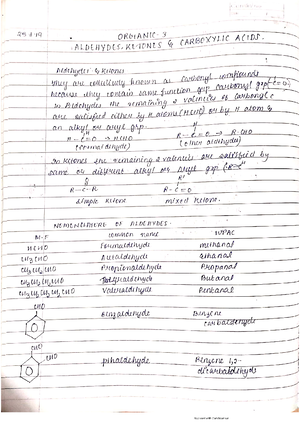 ORGANIC-3
ALDEHYDES, KETONES & CARBOXYLIC ACIDS.
Aldehydes & Ketones
They are collectively known as carbonyl compounds
because they contain same function grp carbonyl grp (C=O)
In Aldehydes the remaining 2 valencies of carbonyl c
are satisfied either by H atoms (HCHO) or by H atom &
an alkyl or aryl grp.
H H
R-C=O → HCHO R-C=O → R CHO
(formaldehyde) (other aldehyde)
In Ketones the remaining 2 valencies are satisfied by
same or different alkyl or aryl grp
R-C-R R-C=O
simple ketone mixed ketone.
NOMENCLATURE OF ALDEHYDES
M.F common name IUPAC
HCHO formaldehyde methanal
CH3CHO Acetaldehyde ethanal
CH3CH2CHO Propionaldehyde Propanal
CH3CH2CH2CHO Butanal
CH3CH2CH2CH2CHO Valeraldehyde Pentanal
CHO
Benzaldehyde Benzene
carbaldehyde
CHO
CHO pthaldehyde Benzene 1,2-
dicarbaldehyde